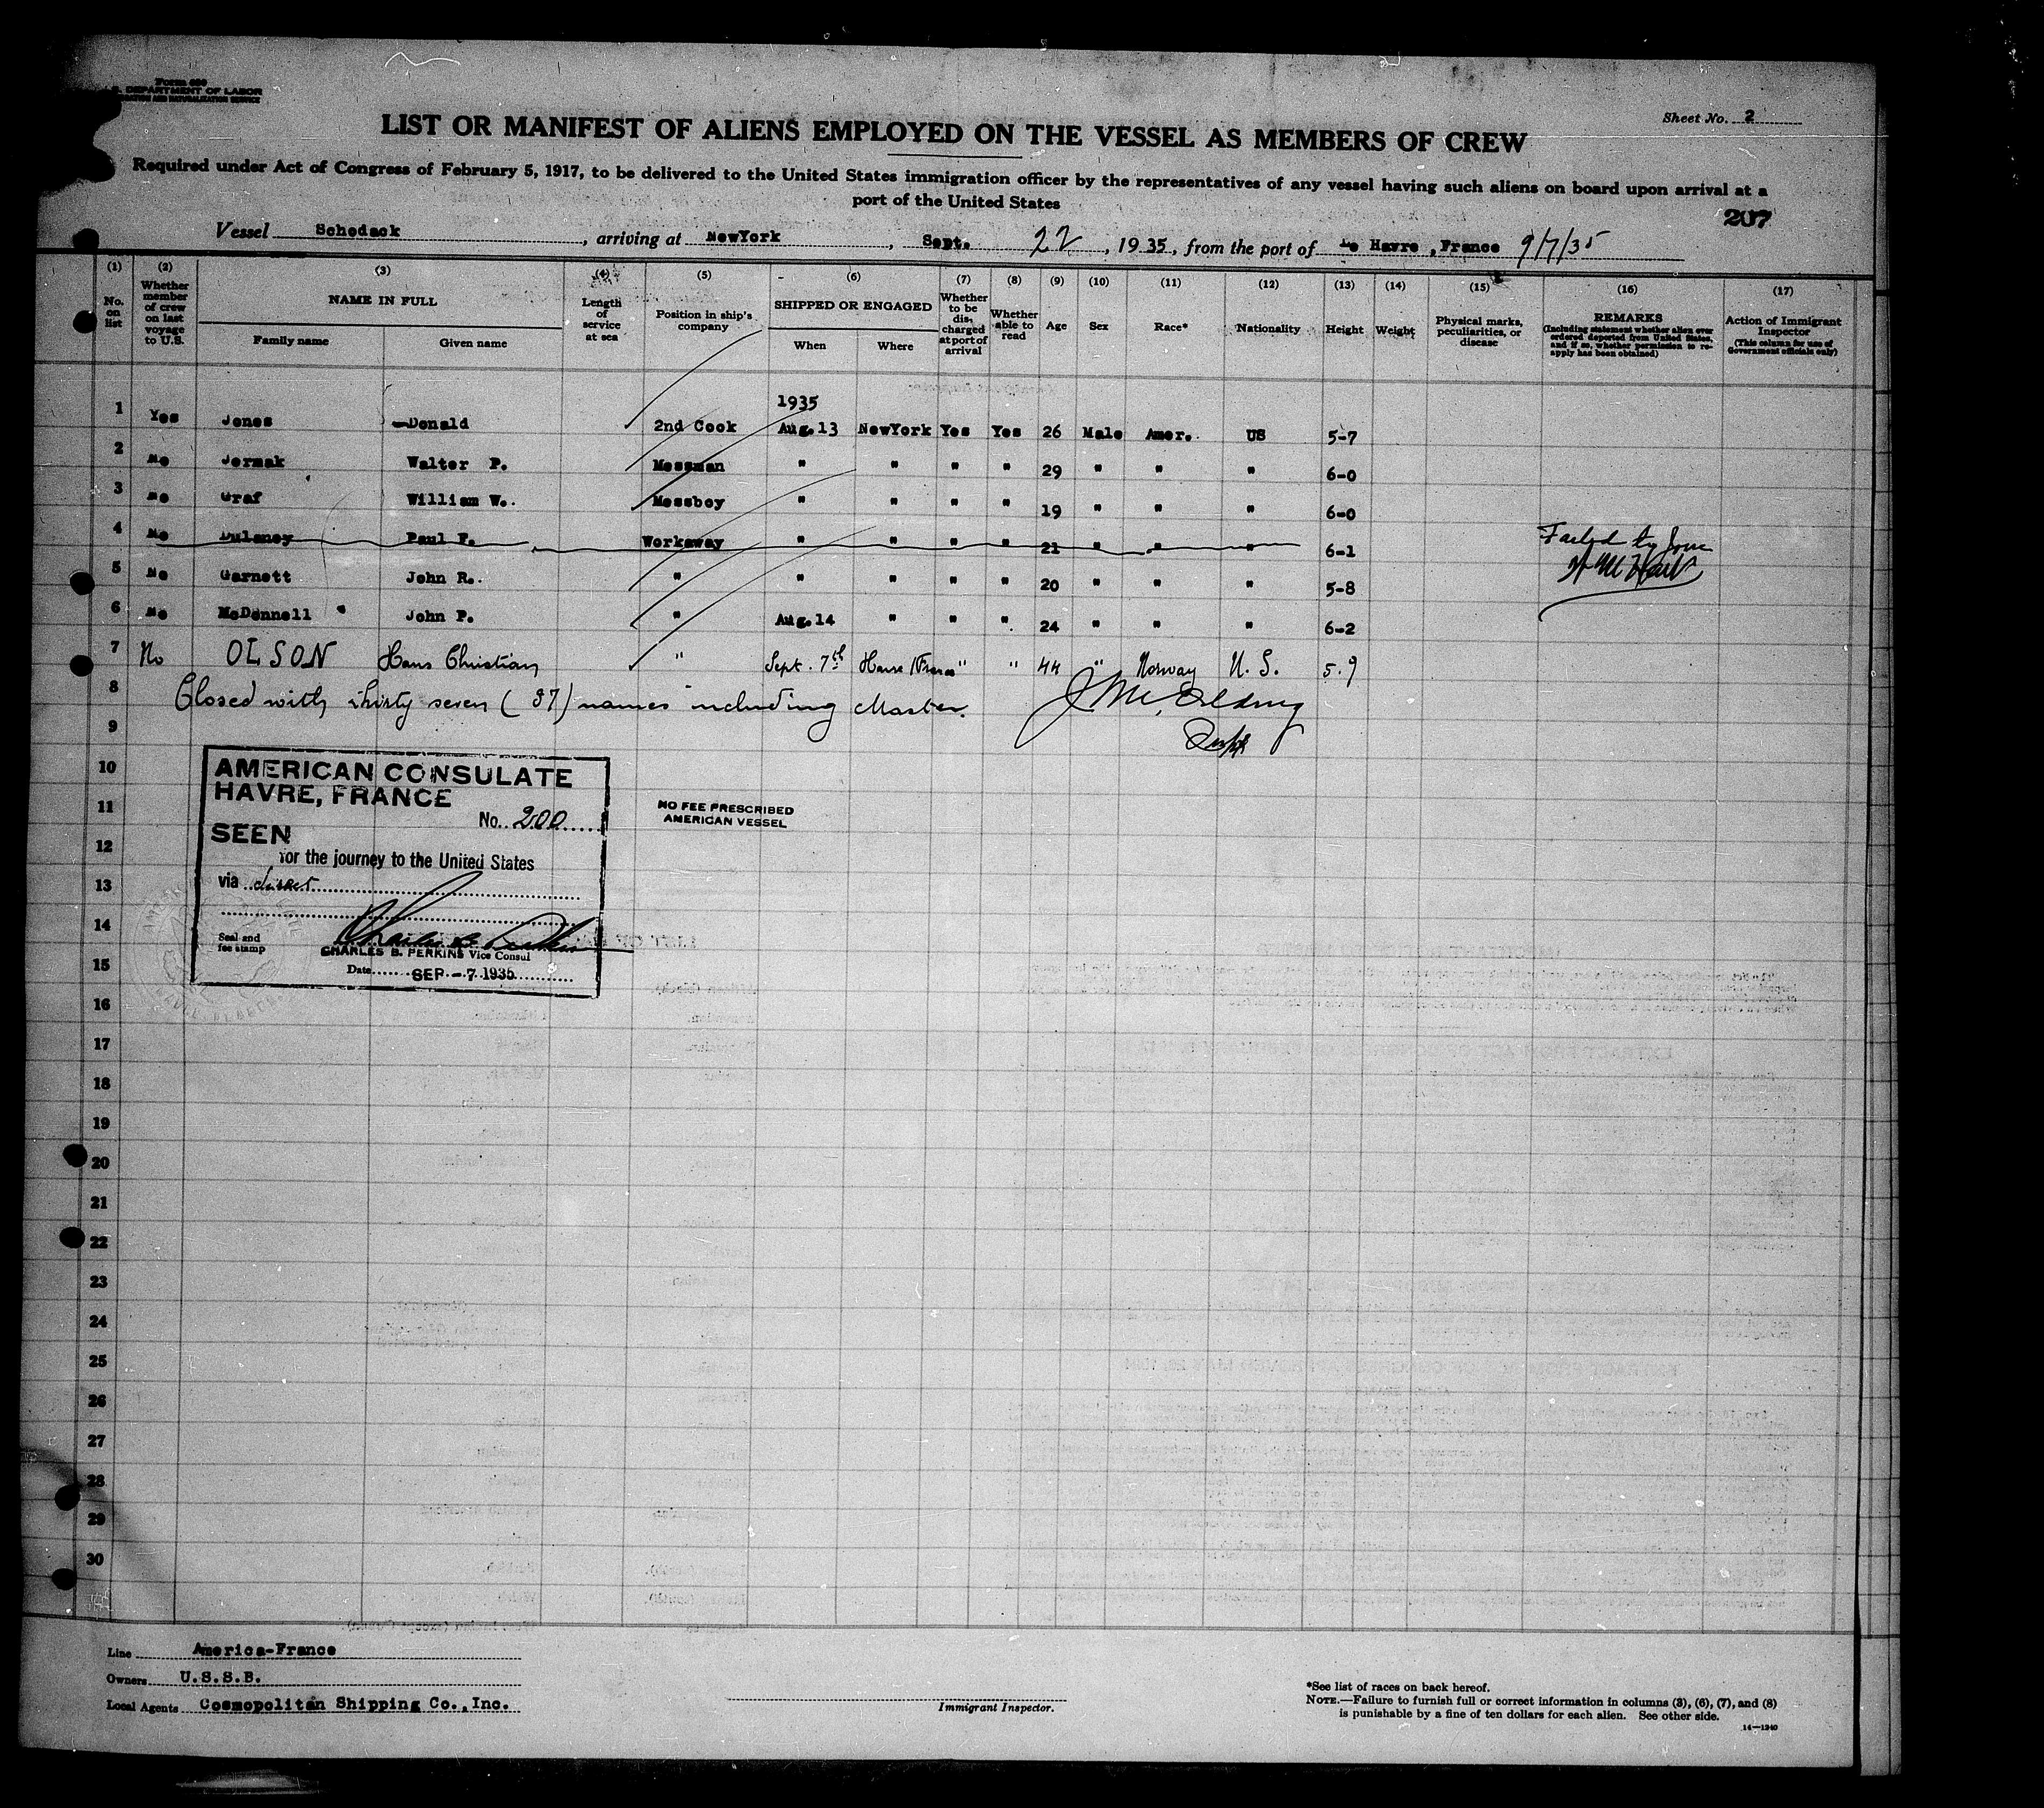 Form 680
U. S. DEPARTMENT OF LABOR
IMMIGRATION AND NATURALIZATION SERVICE
Sheet No. 2
LIST OR MANIFEST OF ALIENS EMPLOYED ON THE VESSEL AS MEMBERS OF CREW
Required under Act of Congress of February 5, 1917, to be delivered to the United States immigration officer by the representatives of any vessel having such aliens on board upon arrival at a
port of the United States
207
Vessel Schodack, arriving at NewYork, Sept. 22, 1935, from the port of Le Havre, France 9/7/35
(1) No. on list
(2) Whether member of crew on last voyage to U.S.
(3) NAME IN FULL Family name Given name
(4) Length of service at sea
(5) Position in ship's company
(6) SHIPPED OR ENGAGED When Where
(7) Whether to be discharged at port of arrival
(8) Whether able to read
(9) Age
(10) Sex
(11) Race*
(12) Nationality
(13) Height
(14) Weight
(15) Physical marks, peculiarities, or disease
(16) REMARKS (Including statement whether alien ever ordered deported from United States, and if so, whether permission to re-apply has been obtained)
(17) Action of Immigrant Inspector (This column for use of Government officials only)
1935
1 Yes Jones Donald 2nd Cook Aug.13 NewYork Yes Yes 26 Male Amer. US 5-7
2 No Jermak Walter P. Messman " " " " 29 " " " 6-0
3 No Graf William W. Messboy " " " " 19 " " " 6-0
4 No Dulaney Paul F. Workaway " " " " 21 " " " 6-1 Failed to Join
5 No Garnett John R. " " " " " 20 " " " 5-8
6 No McDonnell John P. " Aug.14 " " " 24 " " " 6-2
7 No OLSON Hans Christian " Sept. 7th Havre France " " 44 " Norway U. S. 5.9
8 Closed with thirty seven (37) names including Master.
9
10
11
12
13
14
15
16
17
18
19
20
21
22
23
24
25
26
27
28
29
30
AMERICAN CONSULATE
HAVRE, FRANCE
No. 200
SEEN
for the journey to the United States
via direct
Seal and fee stamp
CHARLES B. PERKINS Vice Consul
Date SEP -7 1935
NO FEE PRESCRIBED
AMERICAN VESSEL
Line America-France
Owners U.S.S.B.
Local Agents Cosmopolitan Shipping Co., Inc.
Immigrant Inspector.
*See list of races on back hereof.
NOTE.—Failure to furnish full or correct information in columns (3), (6), (7), and (8)
is punishable by a fine of ten dollars for each alien. See other side.
14—1240